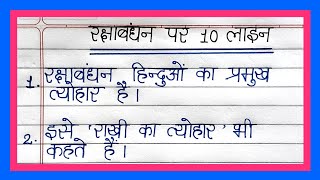 रक्षाबंधन पर 10 लाइन
1. रक्षाबंधन हिन्दुओं का प्रमुख
त्योहार है।
2. इसे 'राखी का त्योहार' भी
कहते हैं।